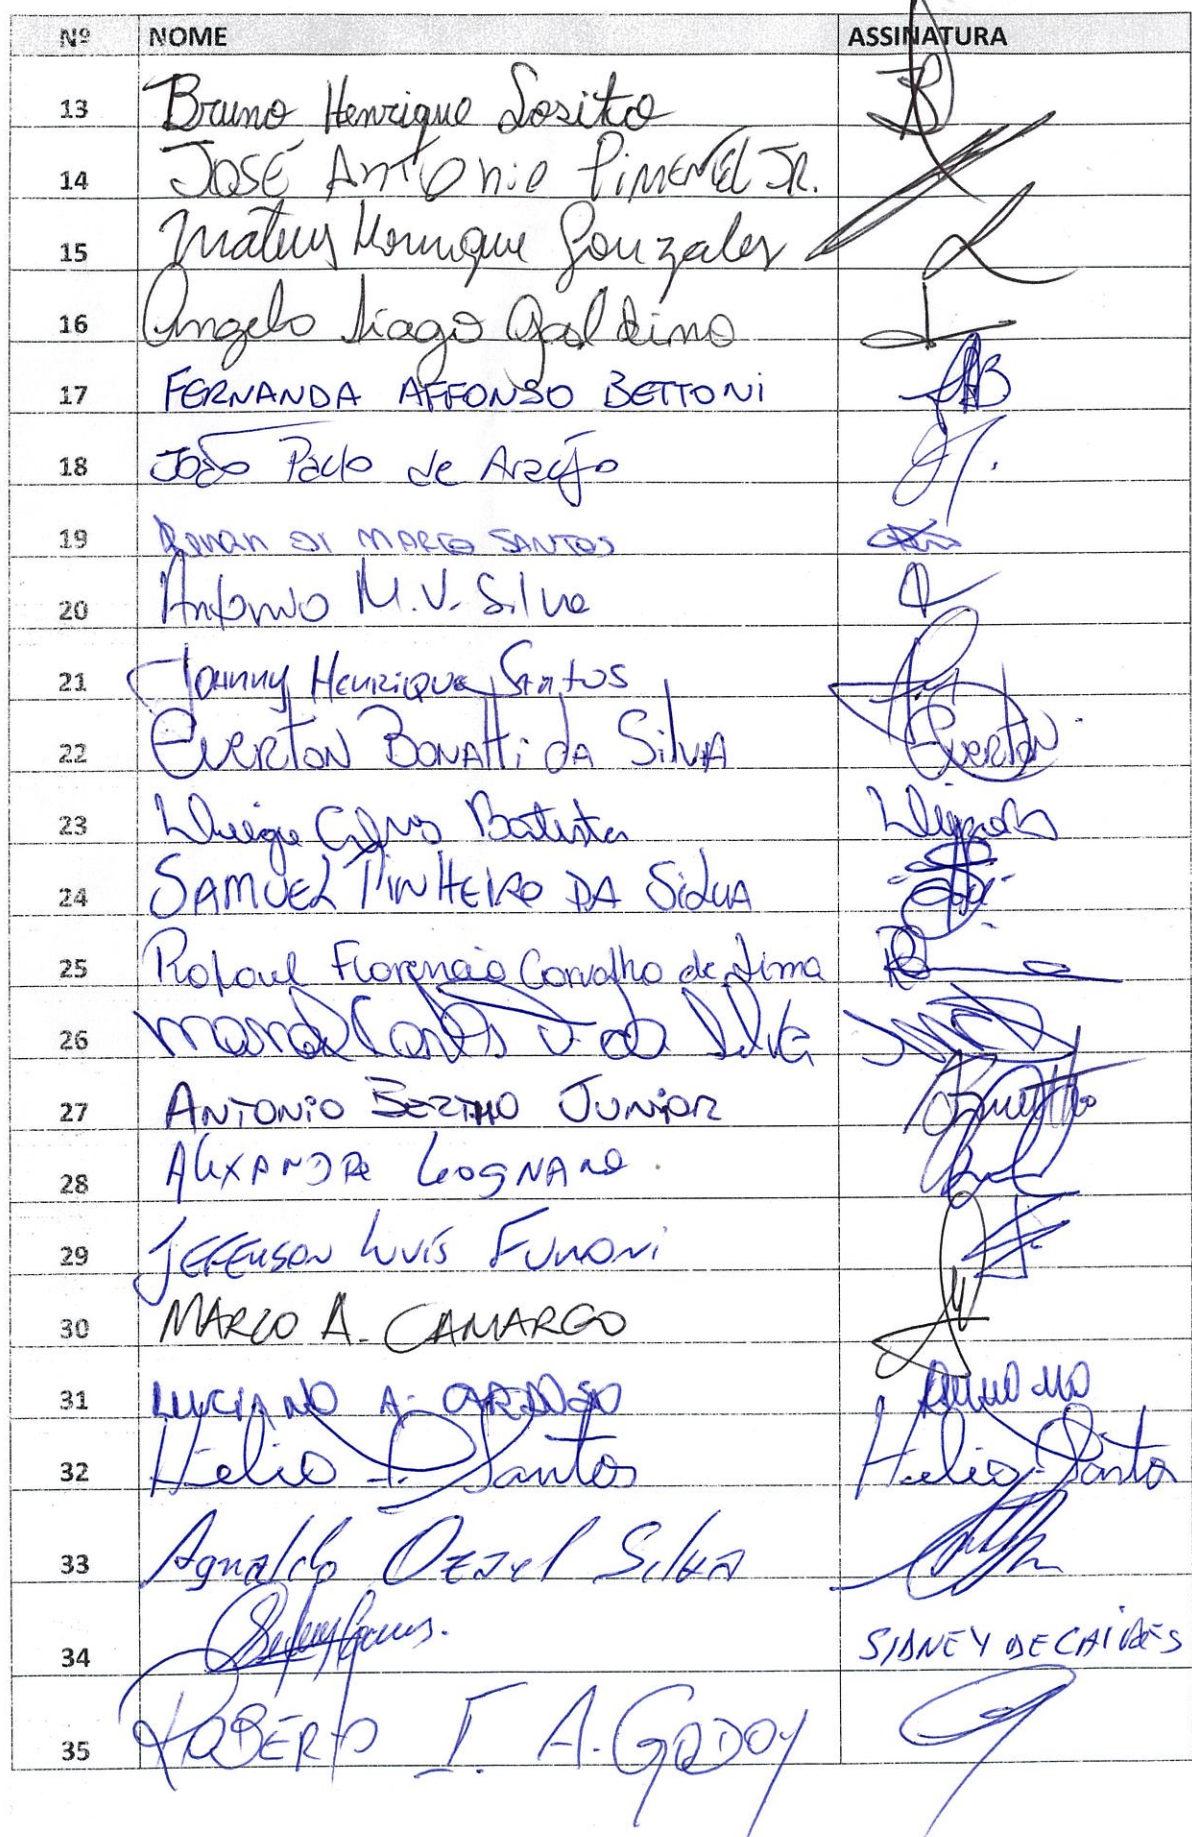 Nº NOME ASSINATURA
13 Bruno Henrique Losito
14 JOSÉ ANTONIO PIMENTEL JR.
15 Mateus Henrique Gonzales
16 Angelo Tiago Galdino
17 FERNANDA AFFONSO BETTONI
18 João Paulo de Araújo
19 RENAN DI MARCO SANTOS
20 Antonio M. V. Silva
21 Johnny Henrique Santos
22 Everton Bonatti da Silva Everton
23 Batista
24 SAMUEL PINHEIRO DA SILVA
25 Rafael Florencio Carvalho de Lima
26 da Silva
27 ANTONIO JUNIOR
28 ALEXANDRE
29 JEFERSON LUÍS
30 MARCO A. CAMARGO
31 LUCIANO A.
32 Helio P. Santos Helio Santos
33 Agnaldo Silva
34 SIDNEY DE
35 ROBERTO I. A. GODOY